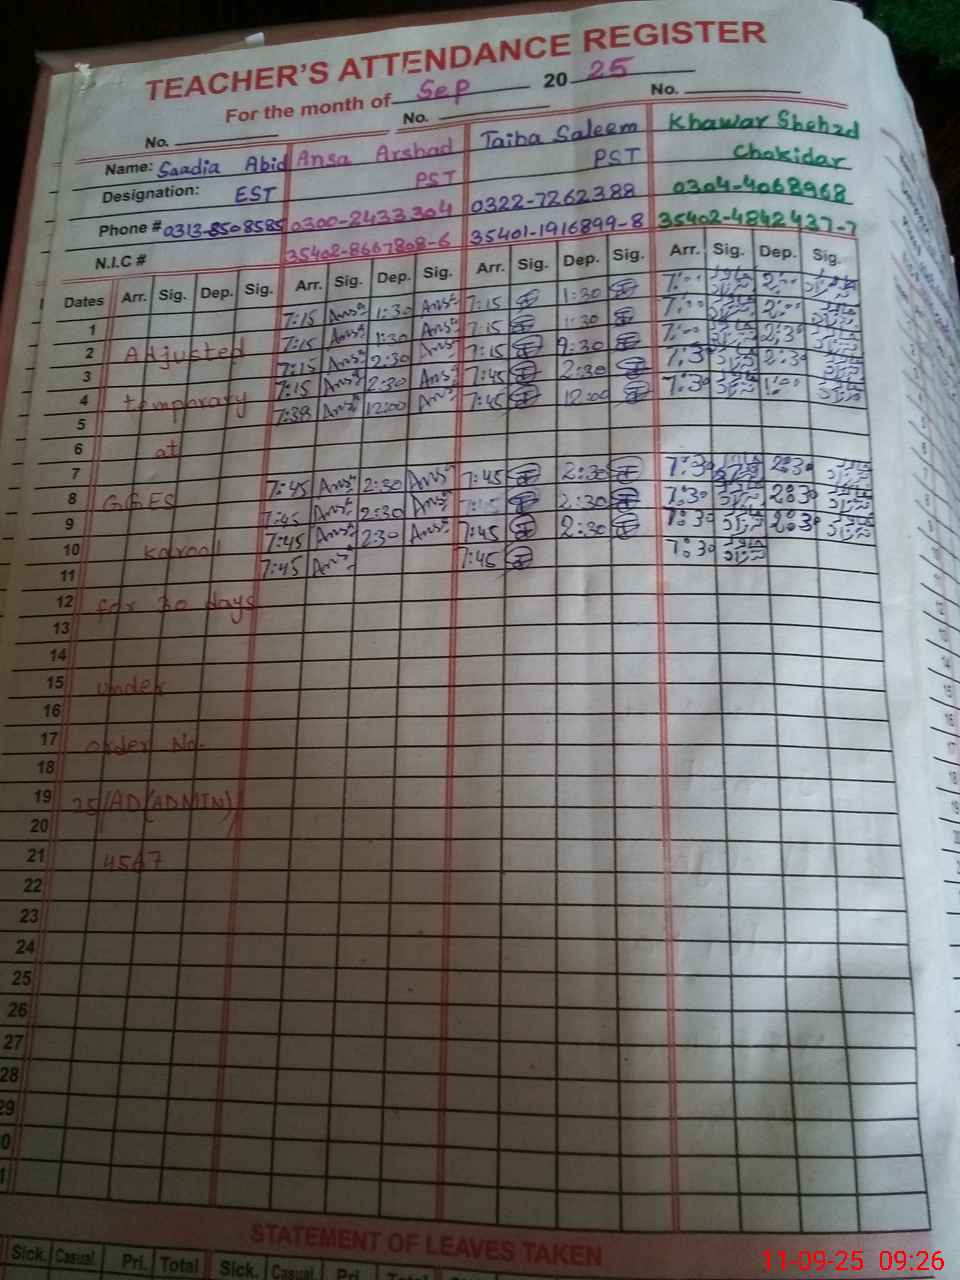 TEACHER'S ATTENDANCE REGISTER
For the month of Sep 2025
No. No. No.
Name: Saadia Abid Ansa Arshad Taiba Saleem Khawar Shehzd
Designation: EST PST PST Chokidar
Phone # 0313-8508585 0300-2433304 0322-7262388 0304-4068968
N.I.C # 35402-8667808-6 35401-1916899-8 35402-4842437-7
Dates Arr. Sig. Dep. Sig. Arr. Sig. Dep. Sig. Arr. Sig. Dep. Sig. Arr. Sig. Dep. Sig.
1 7:15 Ansa 1:30 Ansa 7:15 1:30 7:00 2:00
2 Adjusted 7:15 Ansa 1:30 Ansa 7:15 1:30 7:00 2:00
3 7:15 Ansa 2:30 Ansa 7:15 2:30 7:00 2:30
4 temporary 7:15 Ansa 2:30 Ansa 7:45 2:30 7:30 2:30
5 7:38 Ansa 12:00 Ansa 7:45 12:00 7:30 1:00
6 at
7
8 GGES 7:45 Ansa 2:30 Ansa 7:45 2:30 7:30 2:30
9 7:45 Ansa 2:30 Ansa 2:30 7:30 2:30
10 7:45 Ansa 2:30 Ansa 7:45 2:30 7:30 2:30
11 7:45 Ansa 7:45 7:30
12 for 30 days
13
14
15 under
16
17 order No.
18
19 25/AD(ADMIN)
20
21 4567
22
23
24
25
26
27
28
29
0
1
STATEMENT OF LEAVES TAKEN
Sick. Casual Pri. Total Sick. Casual Pri. Total
11-09-25 09:26